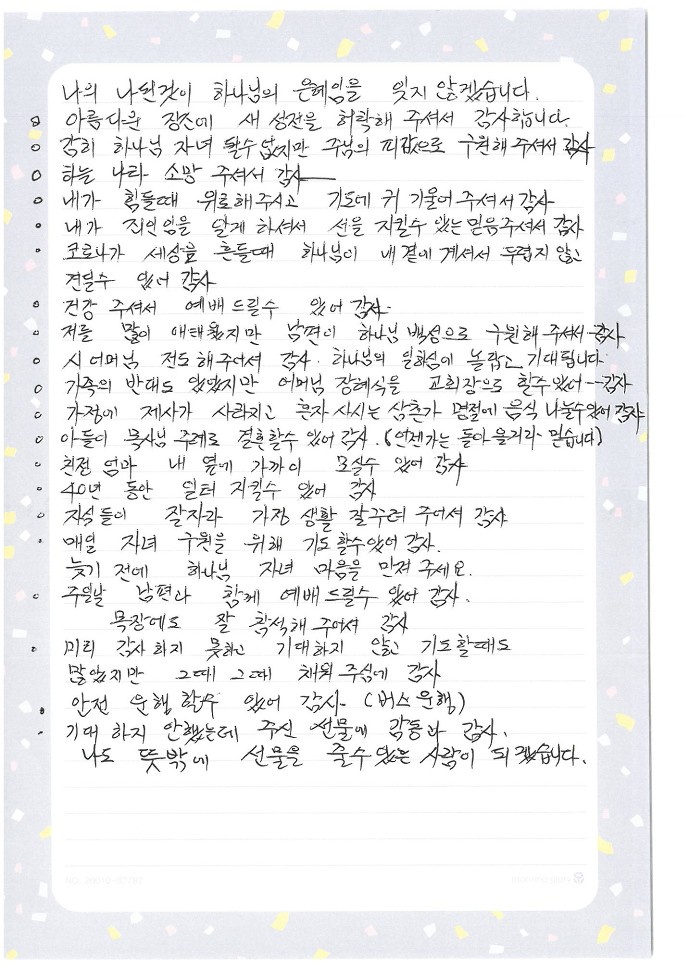 나의 나된것이 하나님의 은혜임을 잊지 않겠습니다.
아름다운 장소에 새 성전을 허락해 주셔서 감사합니다.
감히 하나님 자녀 될수 없지만 주님의 피값으로 구원해 주셔서 감사
하늘 나라 소망 주셔서 감사
내가 힘들때 위로해 주시고 기도에 귀 기울여 주셔서 감사
내가 죄인임을 알게 하셔서 선을 지킬수 있는 믿음 주셔서 감사
코로나가 세상을 흔들때 하나님이 내 곁에 계셔서 두렵지 않고
견딜수 있어 감사
건강 주셔서 예배 드릴수 있어 감사.
저를 많이 애태웠지만 남편이 하나님 백성으로 구원해 주셔서 감사
시어머님 전도해 주셔서 감사. 하나님의 일하심에 놀랍고 기대됩니다.
가족의 반대도 있었지만 어머님 장례식을 교회장으로 할수 있어--감사
가정에 제사가 사라지고 혼자 사시는 삼촌가 명절에 음식 나눌수있어 감사
아들이 목사님 주례로 결혼할수 있어 감사. (언젠가는 돌아올거라 믿습니다)
친정 엄마 내 옆에 가까이 모실수 있어 감사
40년 동안 일터 지킬수 있어 감사
자식들이 잘자라 가정 생활 잘꾸려 주어서 감사
매일 자녀 구원을 위해 기도할수있어 감사.
늦기 전에 하나님 자녀 마음을 만져 주세요.
주일날 남편과 함께 예배드릴수 있어 감사.
목장에도 잘 참석해 주어서 감사
미리 감사하지 못하고 기대하지 않고 기도할때도
많았지만 그때 그때 채워주심에 감사
안전 운행 할수 있어 감사 (버스운행)
기대 하지 안했는데 주신 선물에 감동과 감사.
나도 뜻밖에 선물을 줄수있는 사람이 되겠습니다.